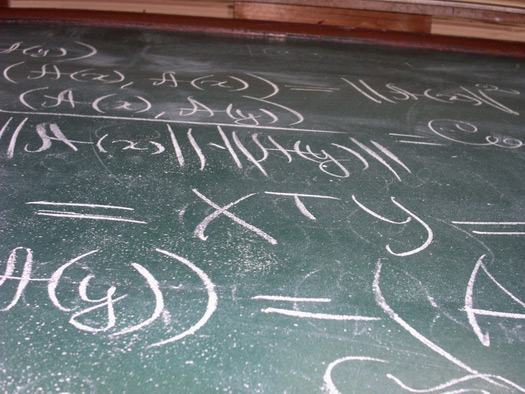 A(y))
(A(x), A(x)) = ||A(x)||²
(A(x), A(y))
||A(x)||·||A(y)|| = Cos
= x^T y =
A(y)) = (A